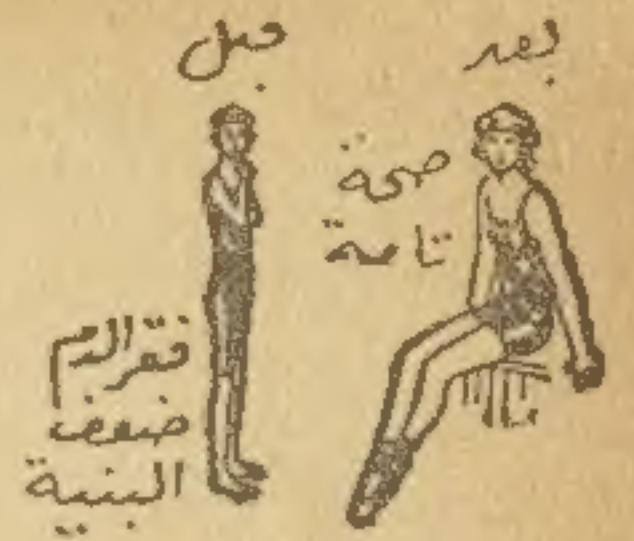 بعد
صحة
تامة
قبل
فقر الدم
ضعف
البنية